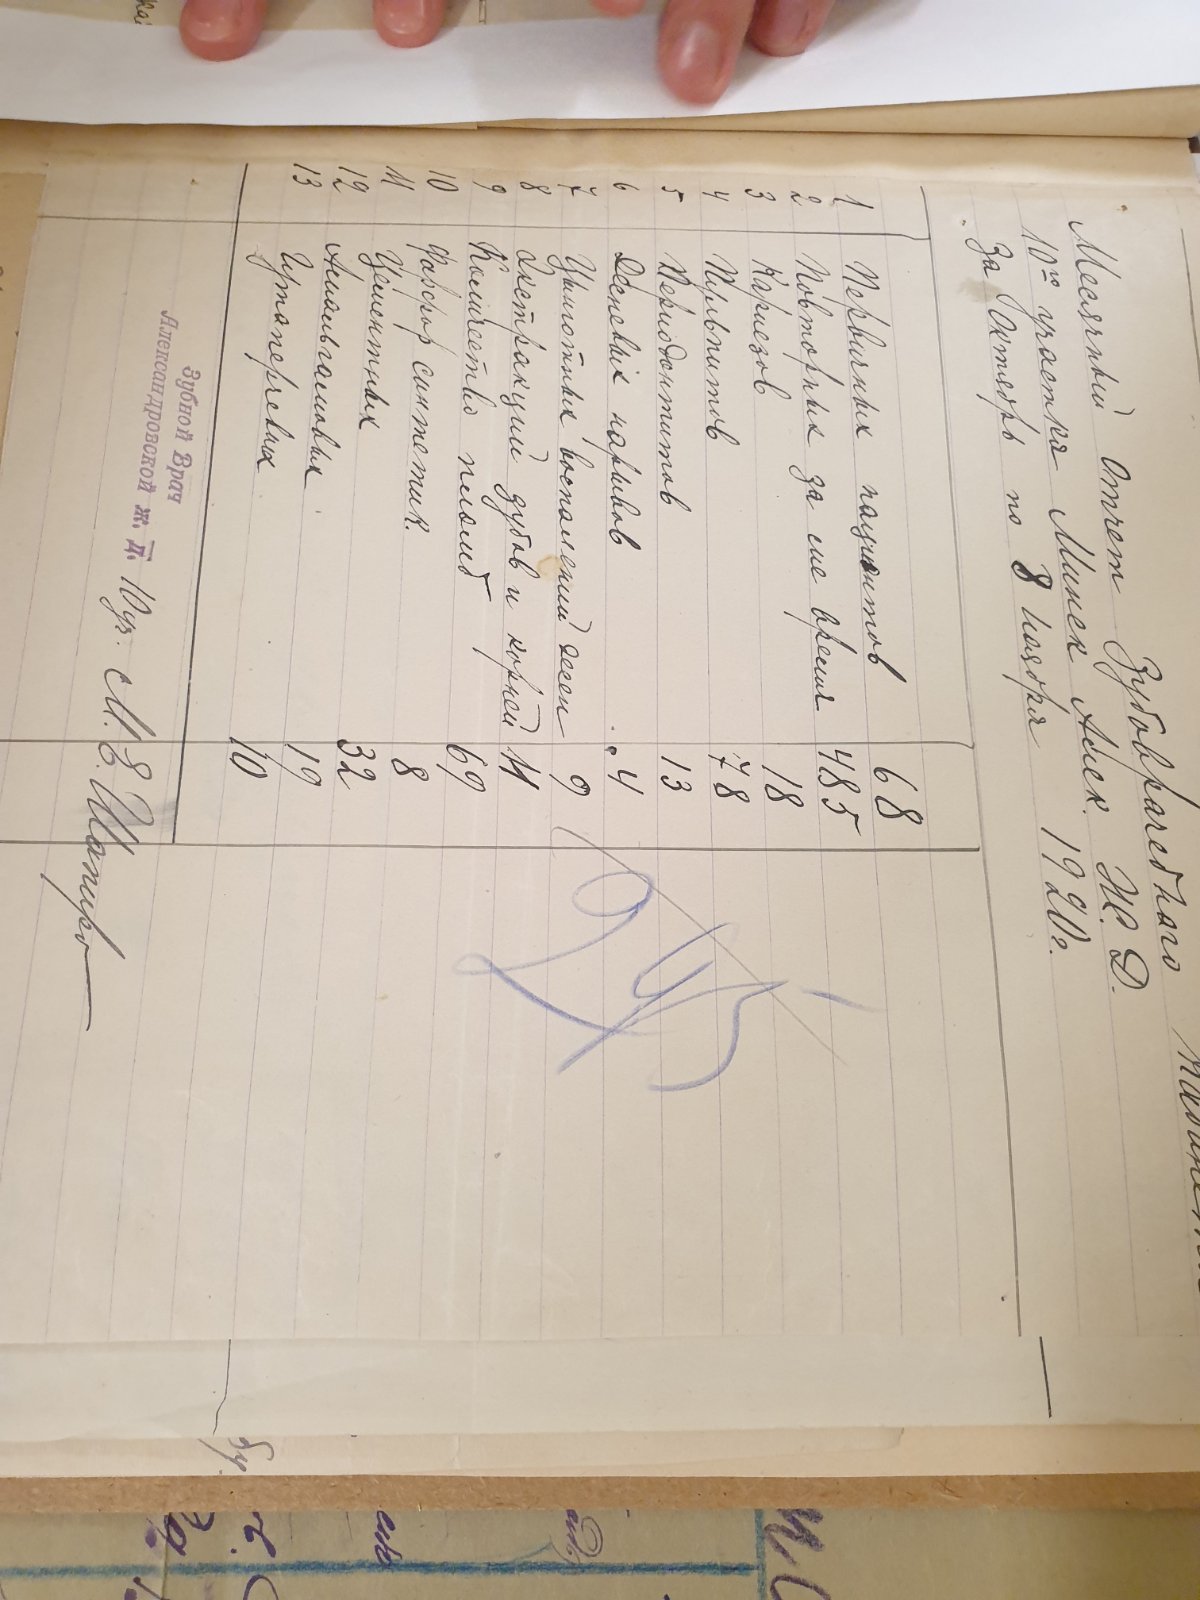 Месячный Отчет Зубоврачебнаго
10го участка Минск Алек. Ж. Д.
За Октябрь по 8 Ноября 1920г.
1 Первичных пациентов 68
2 Повторных за сие время 485
3 Кариезов 18
4 Пульпитов 78
5 Периодонтитов 13
6 Десневых нарывов 4
7 Цынготных воспалений десен 9
8 Экстракций зубов и корней 11
9 Количество пломб 69
10 Фарфор синтетик. 8
11 Цементных 32
12 Амальгамовых 19
13 Гутаперчевых 10
Зубной Врач
Александровской ж. д. 10 уч. М. Е. Шапиро